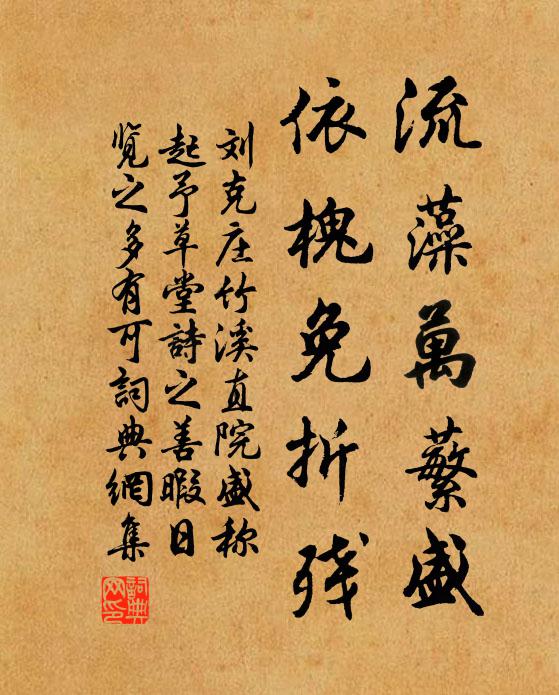 流藻萬蘩盛
依槐免折残
刘克庄竹溪直院盛称
起予草堂詩之善暇日
览之多有可詞典網集
詞典网印